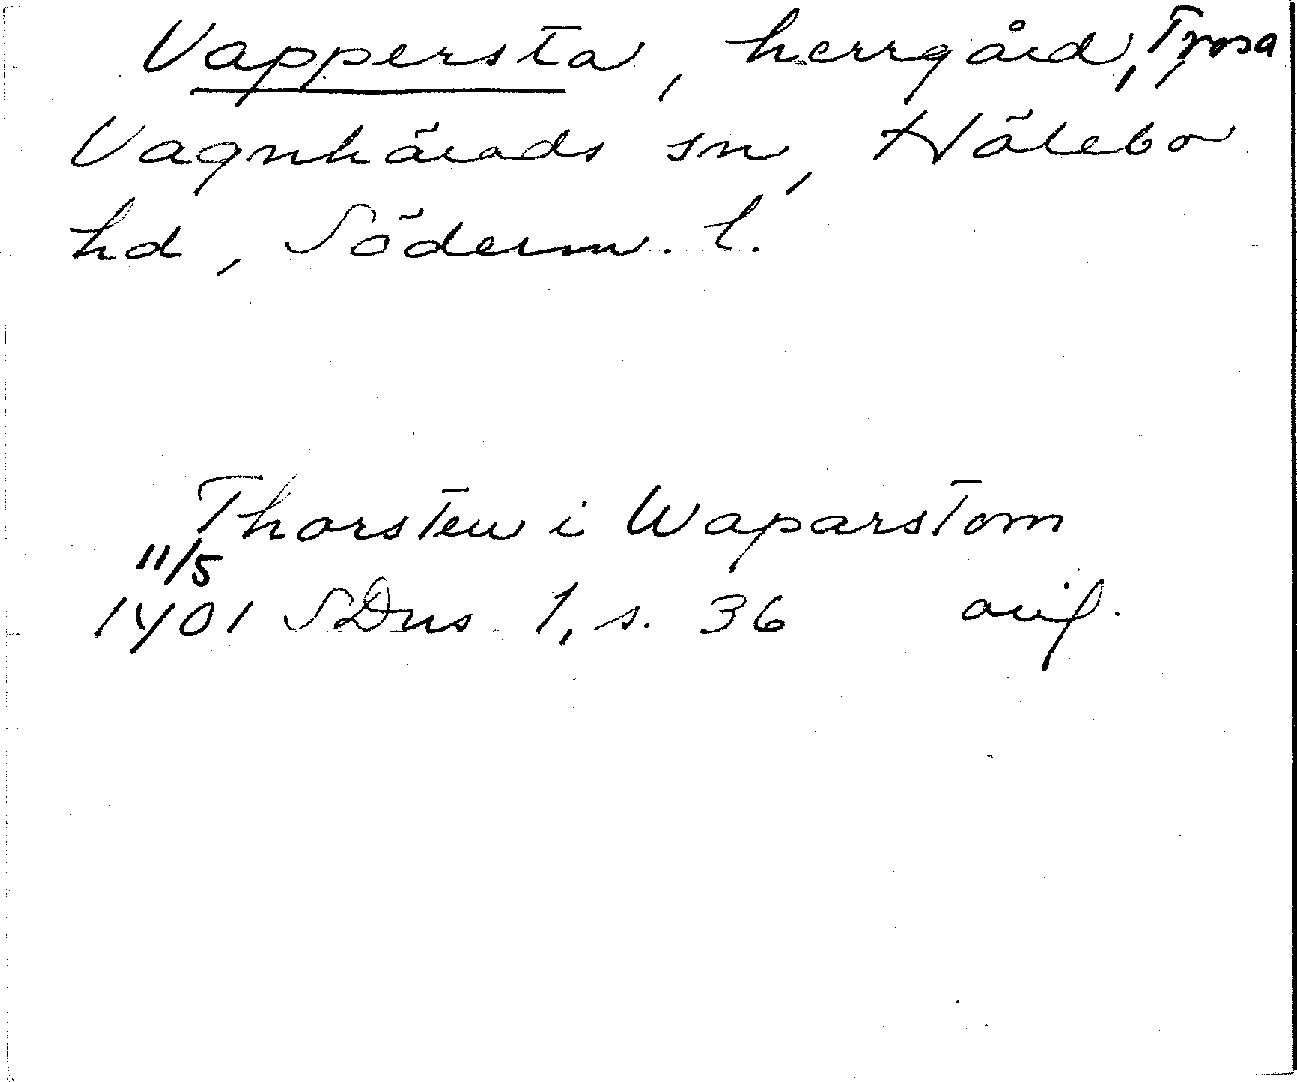 Vappersta, herrgård, Trosa
Vagnhärads sn, Hölebo
hd, Söderm. l.
Thorsten i Waparstom
11/5
1401 SDns 1, s. 36 avs.